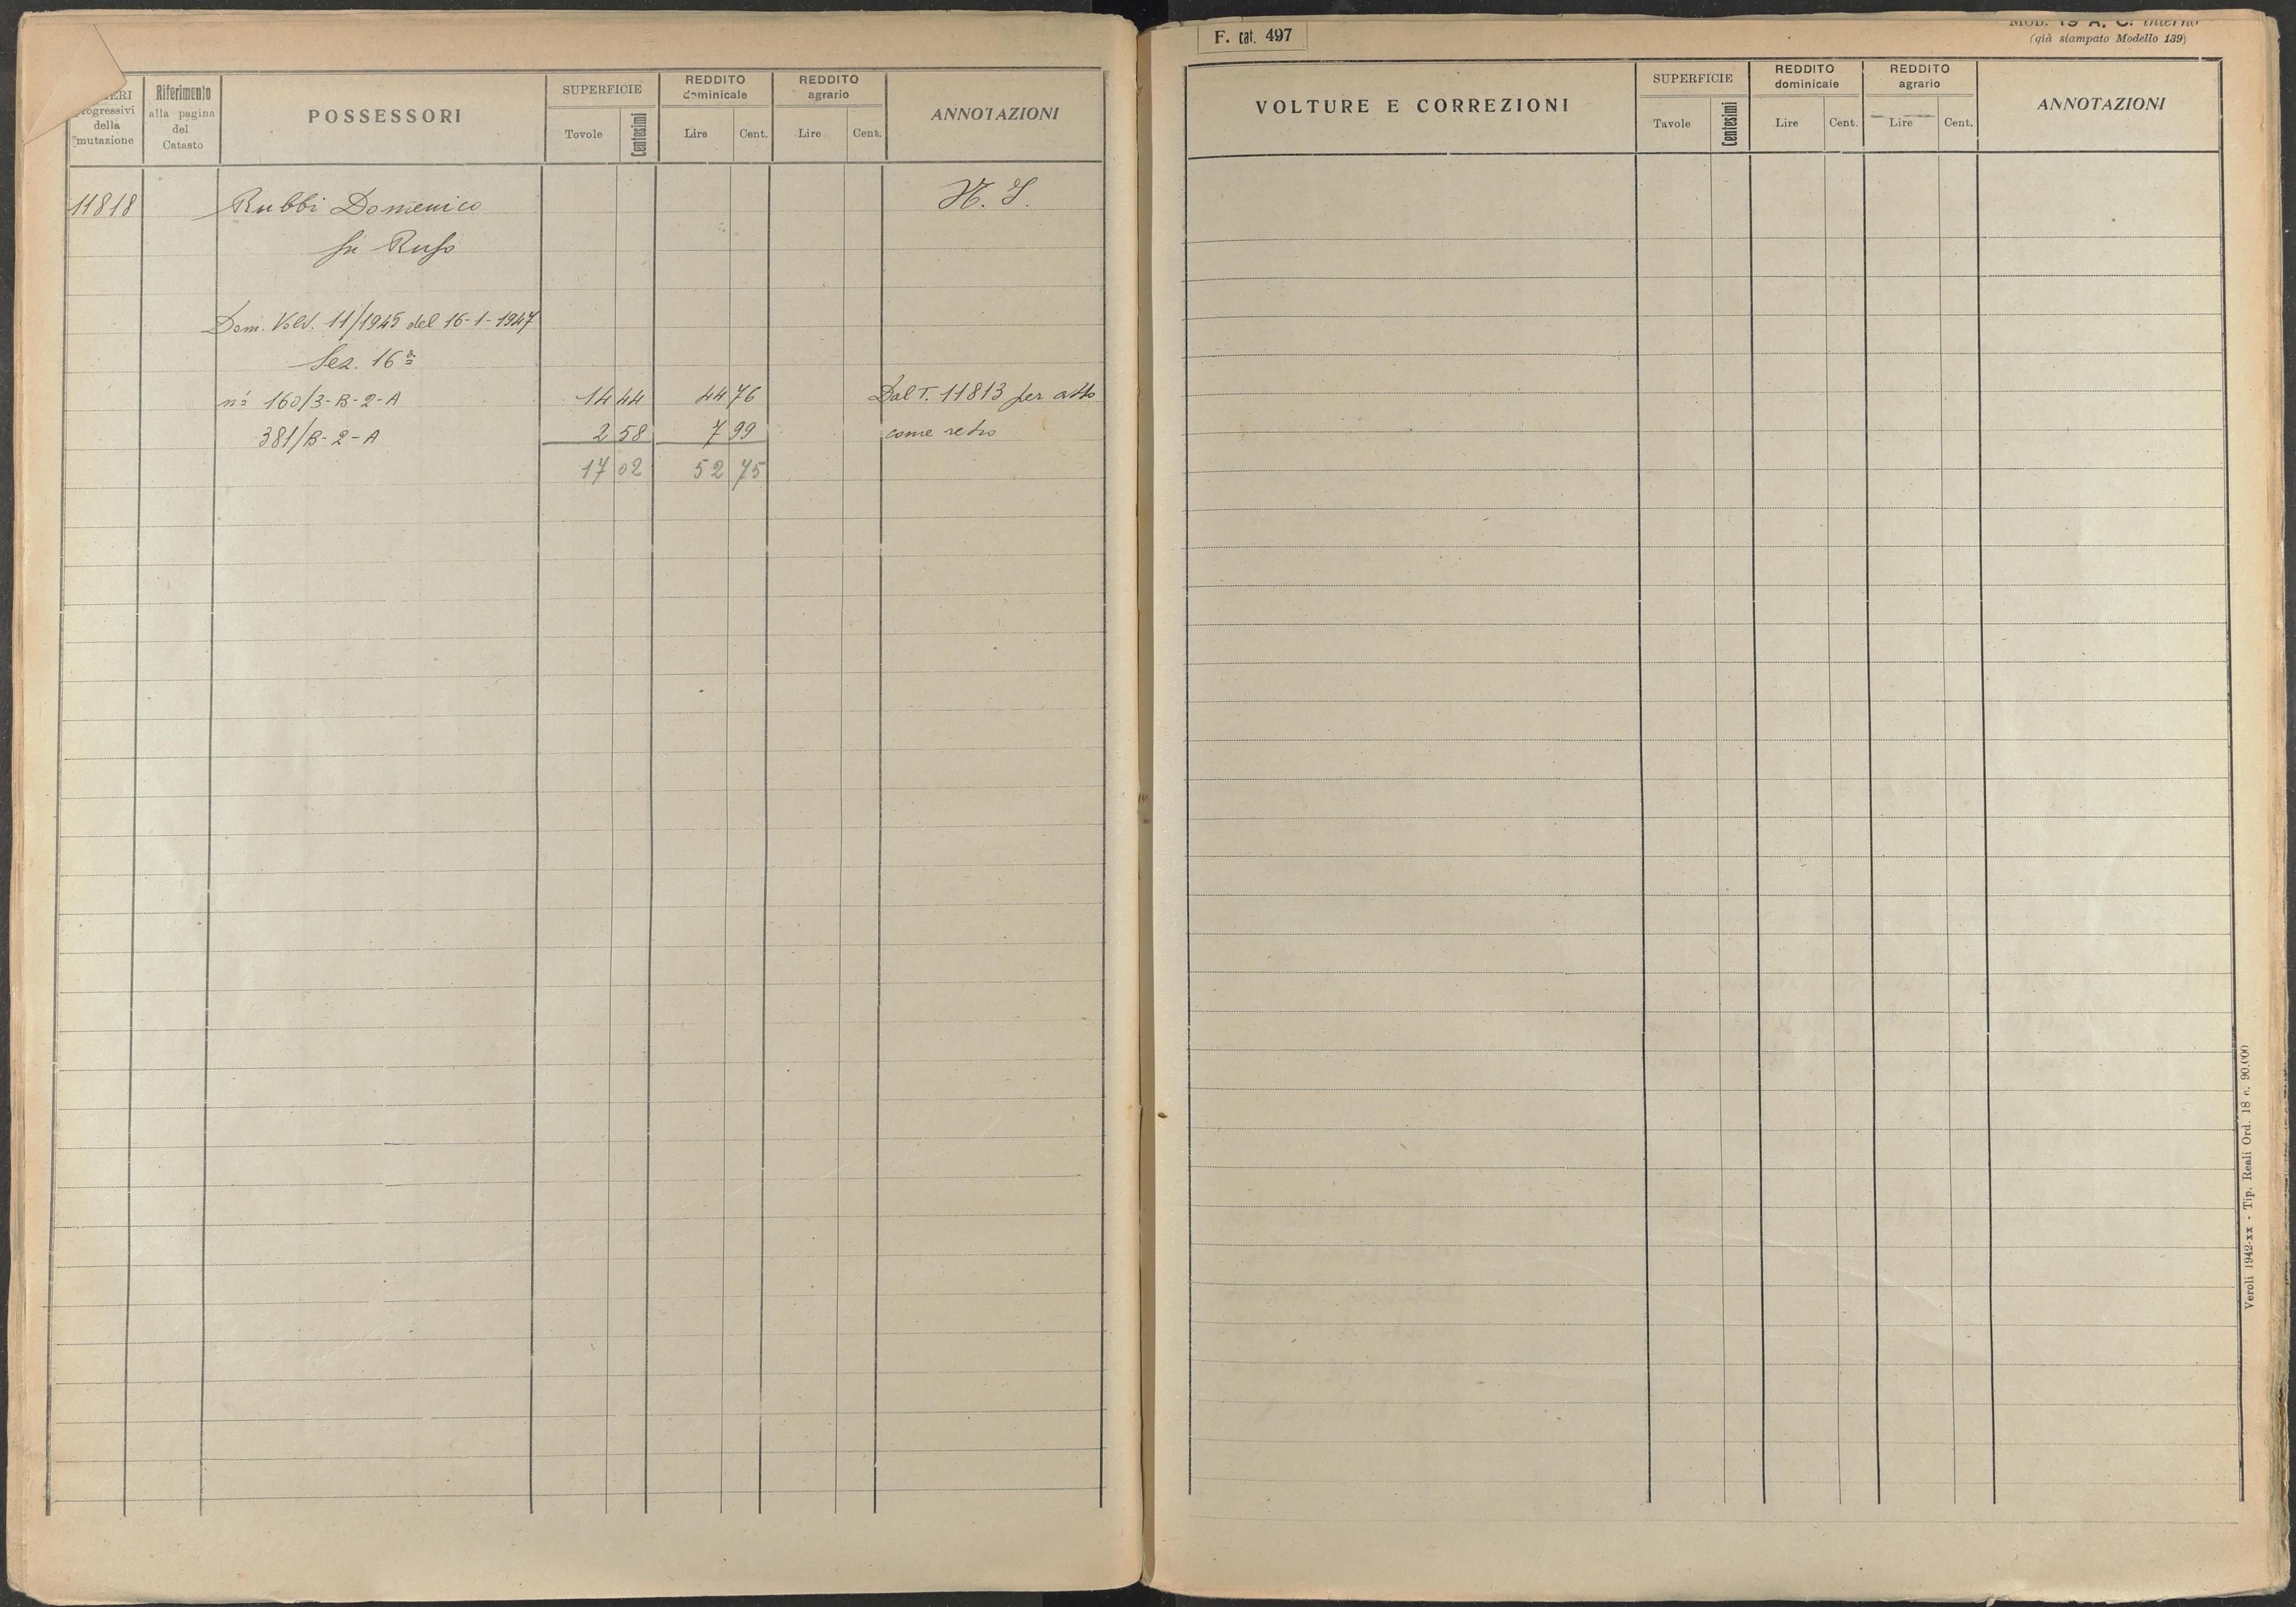 NUMERI
progressivi
della
mutazione
Riferimento
alla pagina
del
Catasto
POSSESSORI
SUPERFICIE
Tovole
Centesimi
REDDITO
dominicale
Lire
Cent.
REDDITO
agrario
Lire
Cent.
ANNOTAZIONI
11818 Rubbi Domenico
fu Rufo
Dom. Volt. 11/1945 del 16-1-1947
Sez. 16ª
nⁱ 160/3-B-2-A 14 44 44 76 Dal T. 11813 per atto
381/B-2-A 2 58 7 99 come retro
17 02 52 75
F. cat. 497
MOD. 19 A. C. interno
(già stampato Modello 139)
VOLTURE E CORREZIONI
SUPERFICIE
Tavole
Centesimi
REDDITO
dominicale
Lire
Cent.
REDDITO
agrario
Lire
Cent.
ANNOTAZIONI
Veroli 1942-xx - Tip. Reali Ord. 18 c. 90.000